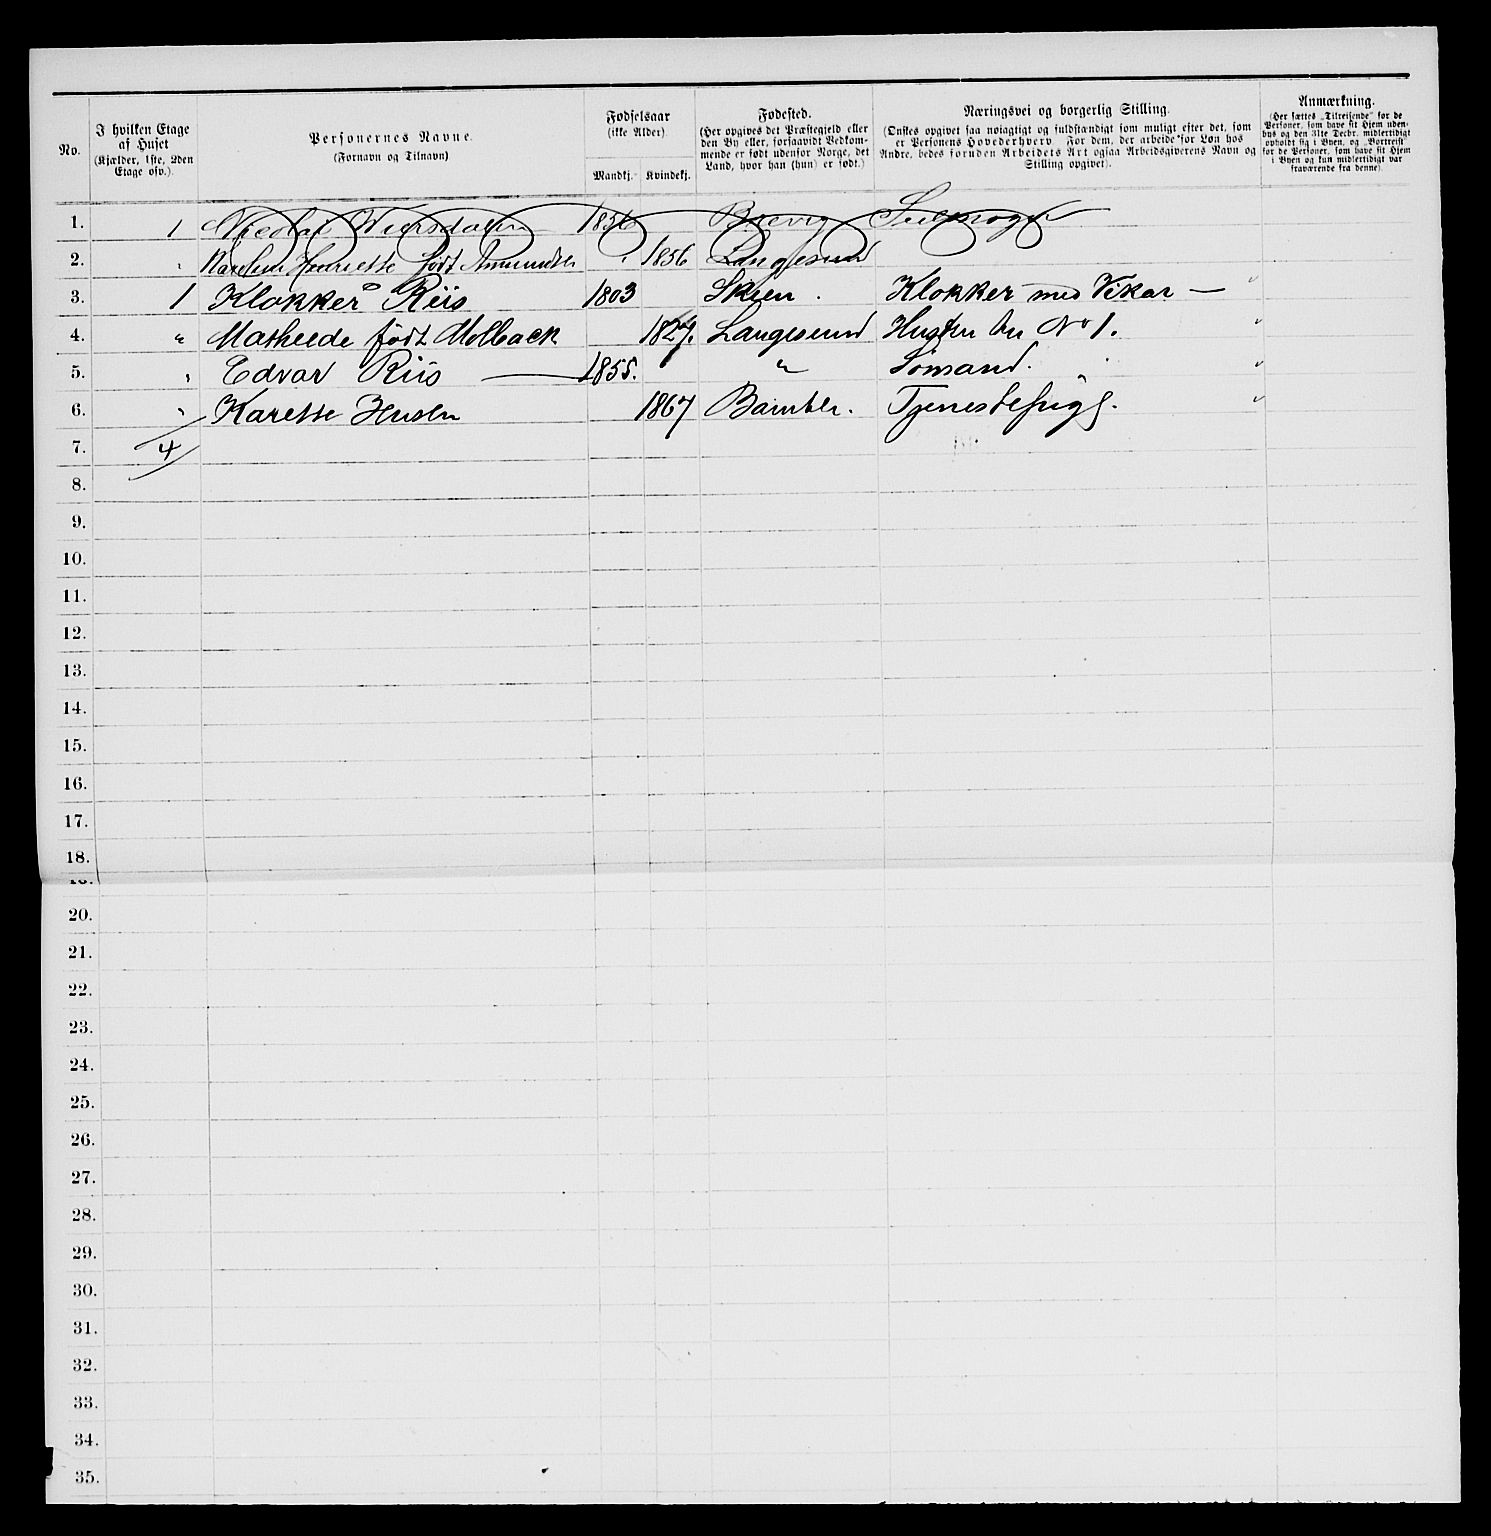 No.
I hvilken Etage af Huset (Kjælder, 1ste, 2den Etage osv.).
Personernes Navne. (Fornavn og Tilnavn)
Fødselsaar (ikke Alder).
Mandkj. Kvindekj.
Fødested. (Her opgives det Præstegjeld eller den By eller, forsaavidt Vedkommende er født udenfor Norge, det Land, hvor han (hun) er født.)
Næringsvei og borgerlig Stilling. (Ønskes opgivet saa nøiagtigt og fuldstændigt som muligt efter det, som er Personens Hovederhverv. For dem, der arbeide for Løn hos Andre, bedes foruden Arbeidets Art ogsaa Arbeidsgiverens Navn og Stilling opgivet).
Anmærkning. (Her sættes „Tilreisende" for de Personer, som have sit Hjem udenbys og den 31te Decbr. midlertidigt opholdt sig i Byen, og „Bortreist" for de Personer, som have sit Hjem i Byen og kun midlertidigt var fraværende fra denne).
1. 1 Nicolai 1856 Brevig
2. " Henriette født " 1856 Langesund
3. 1 Klokker Riis 1803 Skien . Klokker med Vikar — "
4. " Matheede født Molback 1827. Langesund No 1. "
5. " Edvar Riis — 1855. " Sömand. "
6. " Karette 1867 Bamble. "
7. 4
8.
9.
10.
11.
12.
13.
14.
15.
16.
17.
18.
19.
20.
21.
22.
23.
24.
25.
26.
27.
28.
29.
30.
31.
32.
33.
34.
35.